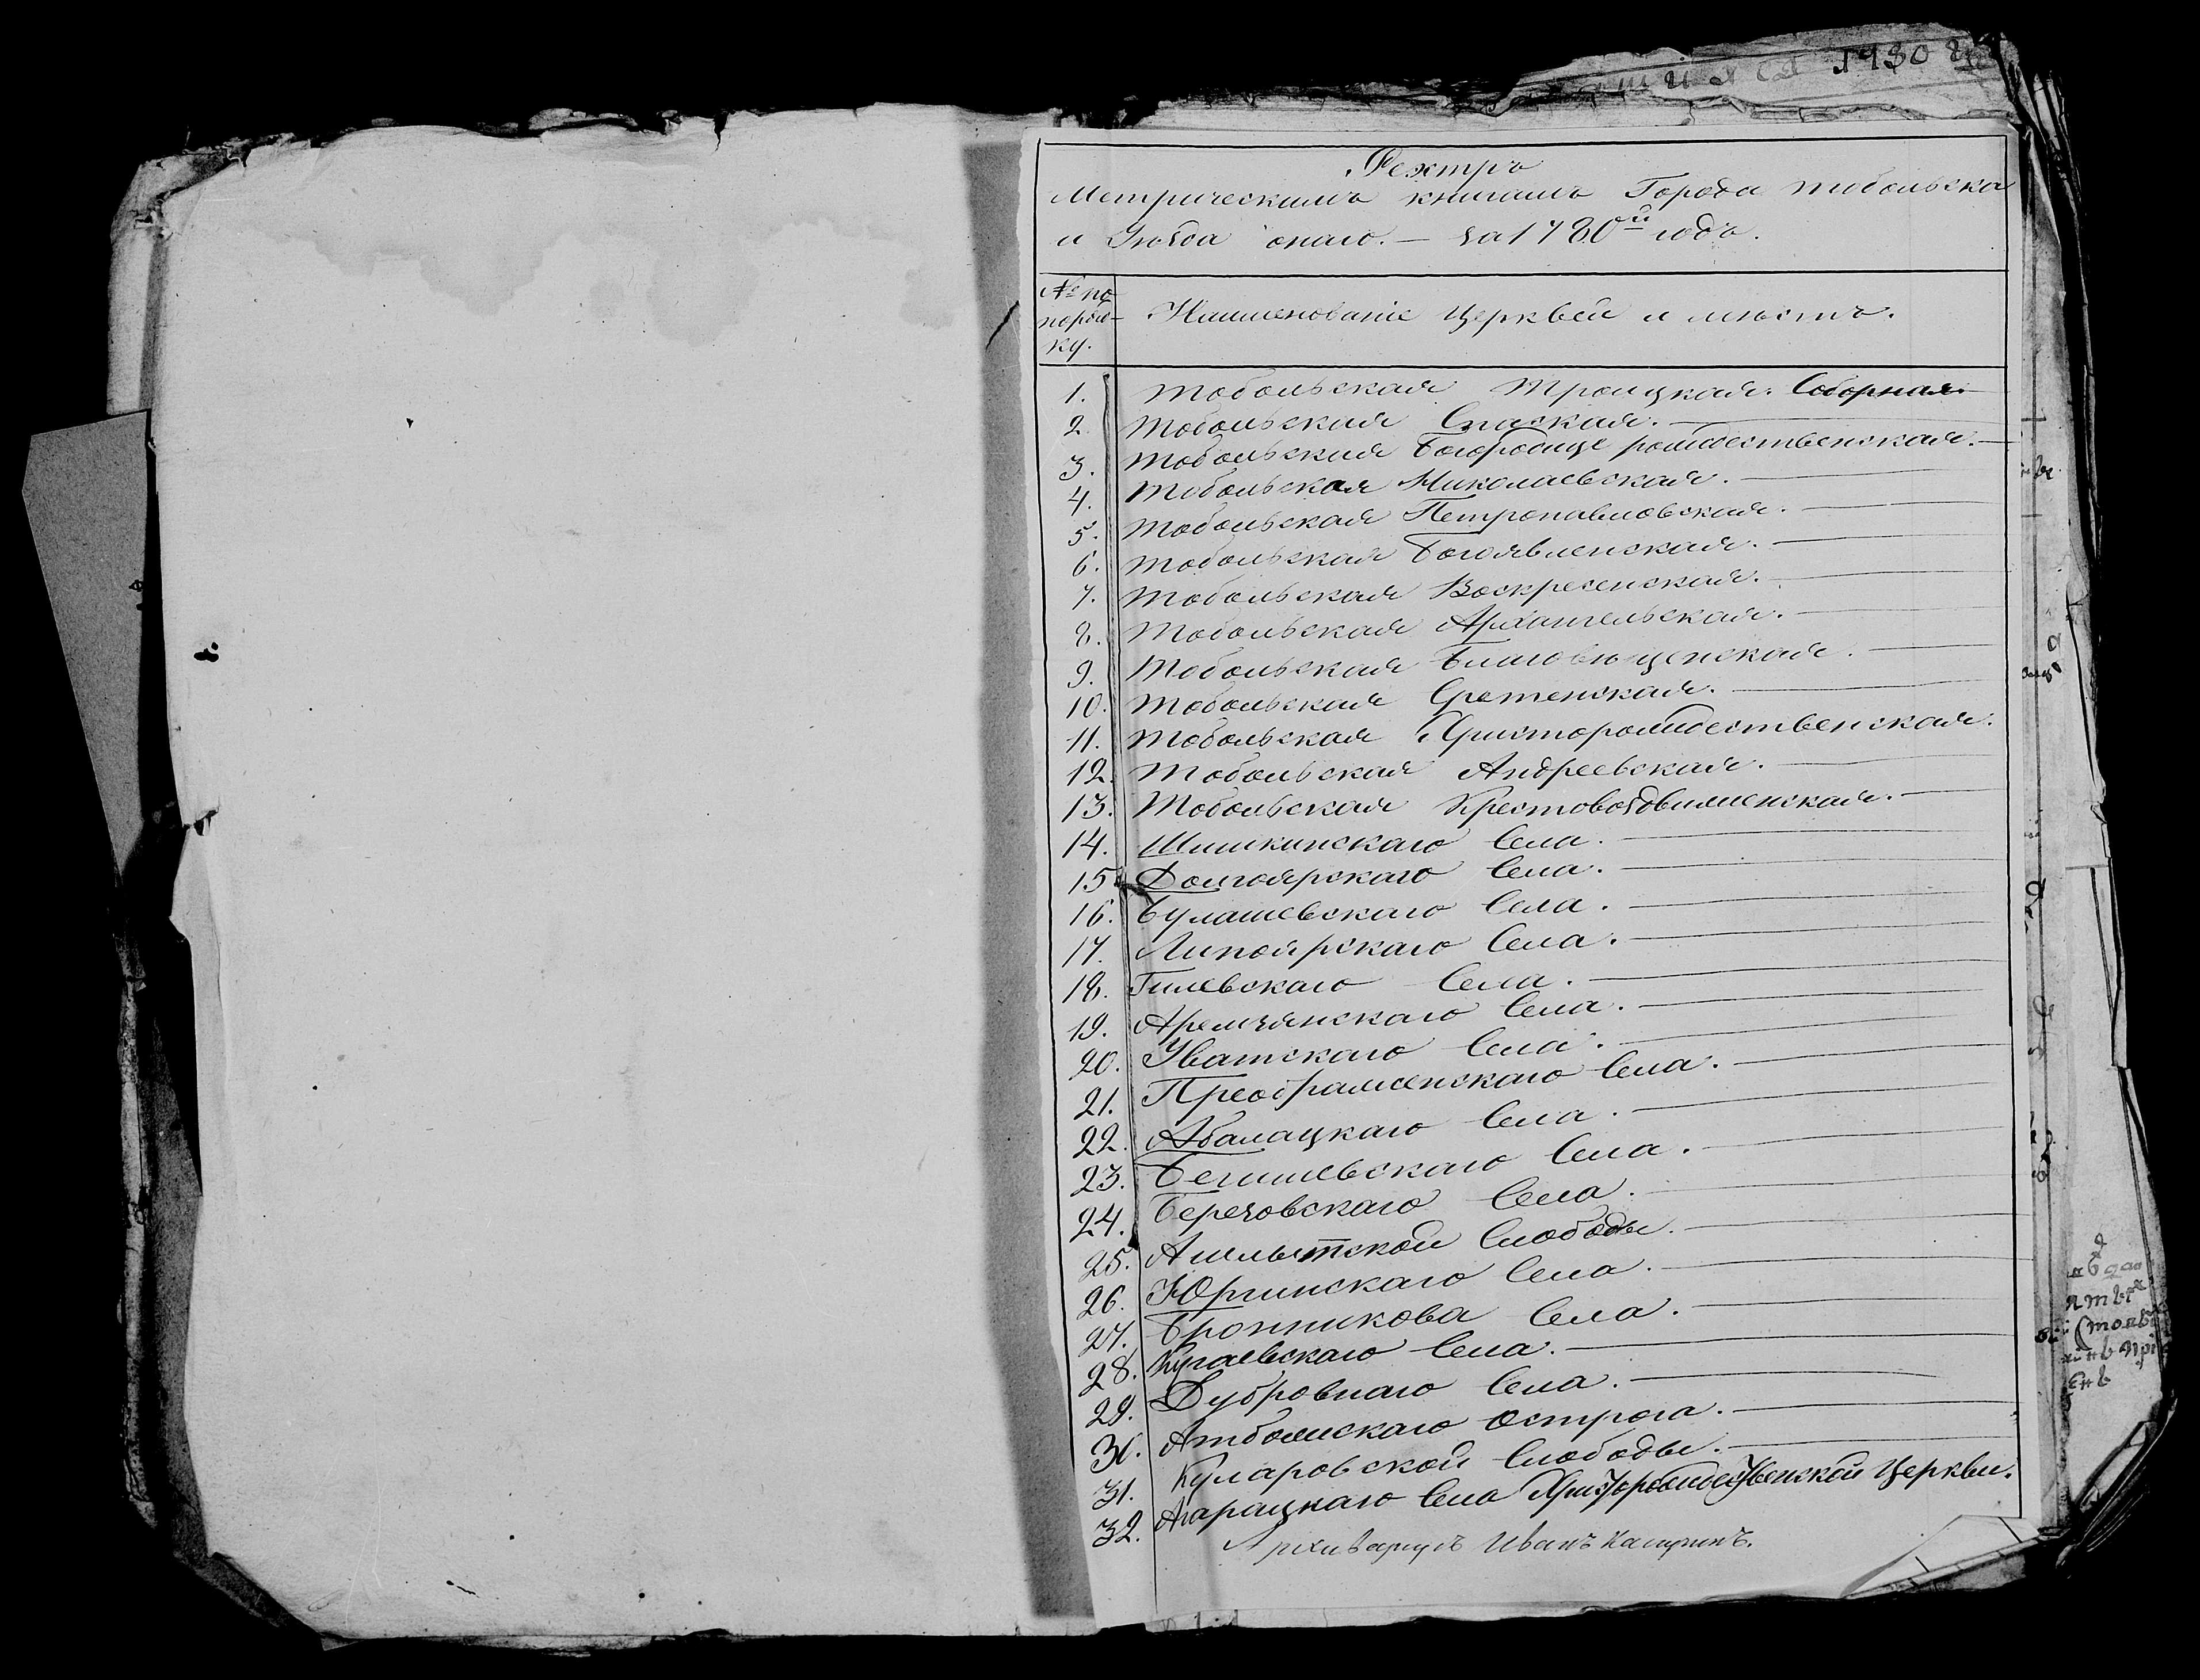 1780 г
Рехтръ
Метрическимъ книгамъ Города Тобольска
и Уѣзда онаго. — за 1780й годъ.
№ по
порядку-
ку.
Наименованіе Церквей и мѣстъ.
1. Тобольская Троицкая. Соборная.
2. Тобольская Спаская.
3. Тобольская Богородице рождественская.
4. Тобольская Николаевская.
5. Тобольская Петропавловская.
6. Тобольская Богоявленская.
7. Тобольская Воскресенская.
8. Тобольская Архангельская.
9. Тобольская Благовѣщенская.
10. Тобольская Сретенская.
11. Тобольская Христорождественская.
12. Тобольская Андреевская.
13. Тобольская Крестовоздвиженская.
14. Шишкинскаго Села.
15. Долгоярскаго Села.
16. Булашевскаго Села.
17. Липоярскаго Села.
18. Гилевскаго Села.
19. Аремзянскаго Села.
20. Уватскаго Села.
21. Преображенскаго Села.
22. Абалацкаго Села.
23. Бегишевскаго Села.
24. Березовскаго Села.
25. Ашлытской Слободы.
26. Юргинскаго Села.
27. Бронникова Села.
28. Кугаевскаго Села.
29. Дубровнаго Села.
30. Атбашскаго Острога.
31. Куларовской Слободы.
32. Агарацкаго Села Христорождественской Церкви.
Архиваріусъ Иванъ